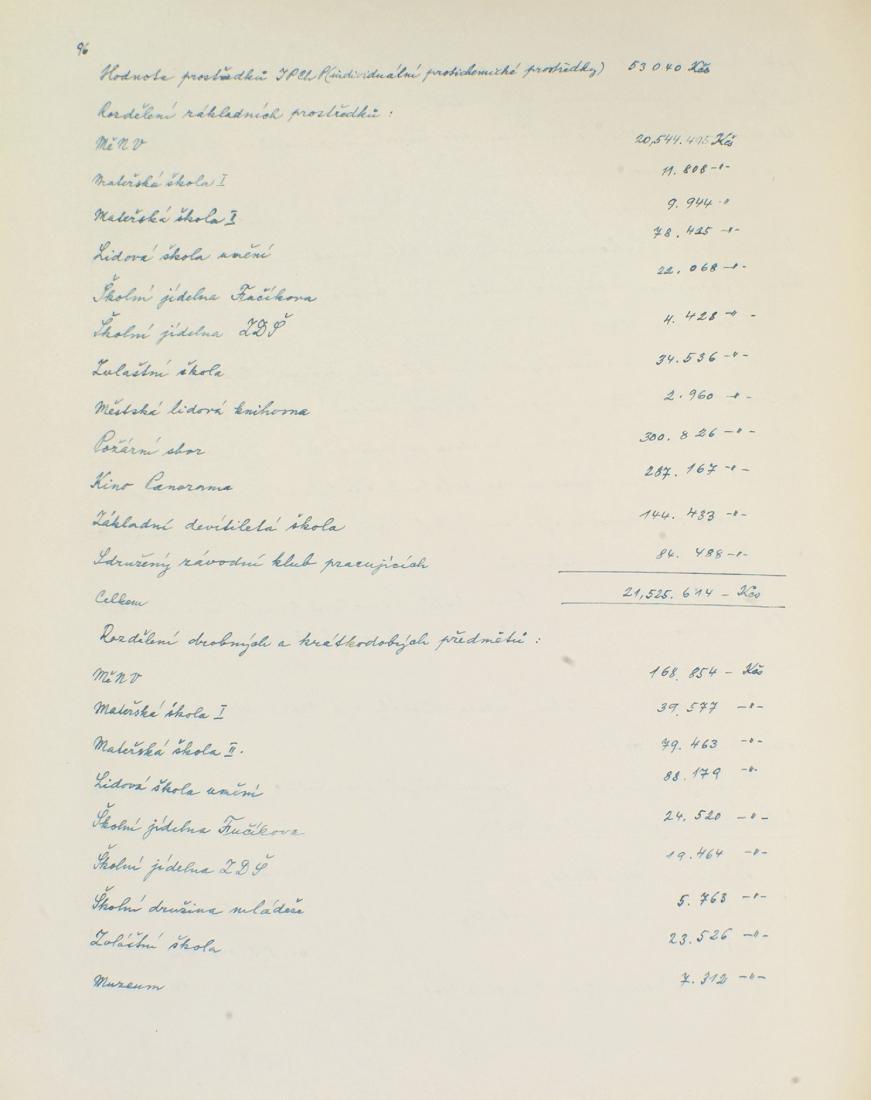 96
Hodnota prostředků IPCHP (individuální protichemické prostředky) 53 040 Kčs
Rozdělení základních prostředků :
MěNV 20,544.495 Kčs
Mateřská škola I 11.808 -"-
Mateřská škola II 9.944 -"-
Lidová škola umění 78.425 -"-
Školní jídelna Fučíkova 22.068 -"-
Školní jídelna ZDŠ 4.428 -"-
Zvláštní škola 34.536 -"-
Městská lidová knihovna 2.960 -"-
Požární sbor 300.826 -"-
Kino Panorama 287.167 -"-
Základní devítiletá škola 144.433 -"-
Sdružený závodní klub pracujících 84.488 -"-
Celkem 21,525.614 - Kčs
Rozdělení drobných a krátkodobých předmětů :
MěNV 168.854 - Kčs
Mateřská škola I 39.577 -"-
Mateřská škola II. 79.463 -"-
Lidová škola umění 88.179 -"-
Školní jídelna Fučíkova 24.520 -"-
Školní jídelna ZDŠ 19.464 -"-
Školní družina mládeže 5.763 -"-
Zvláštní škola 23.526 -"-
Muzeum 7.312 -"-